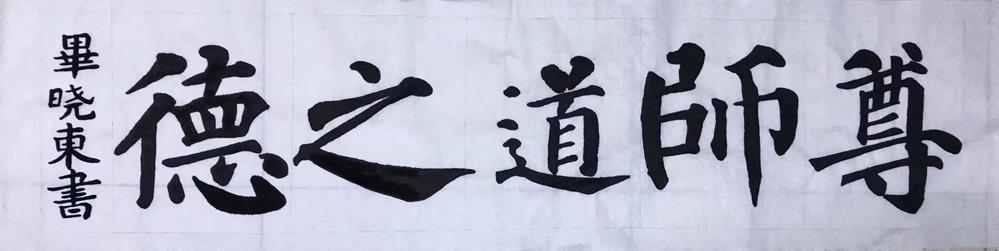 尊師道之德
畢晓東書